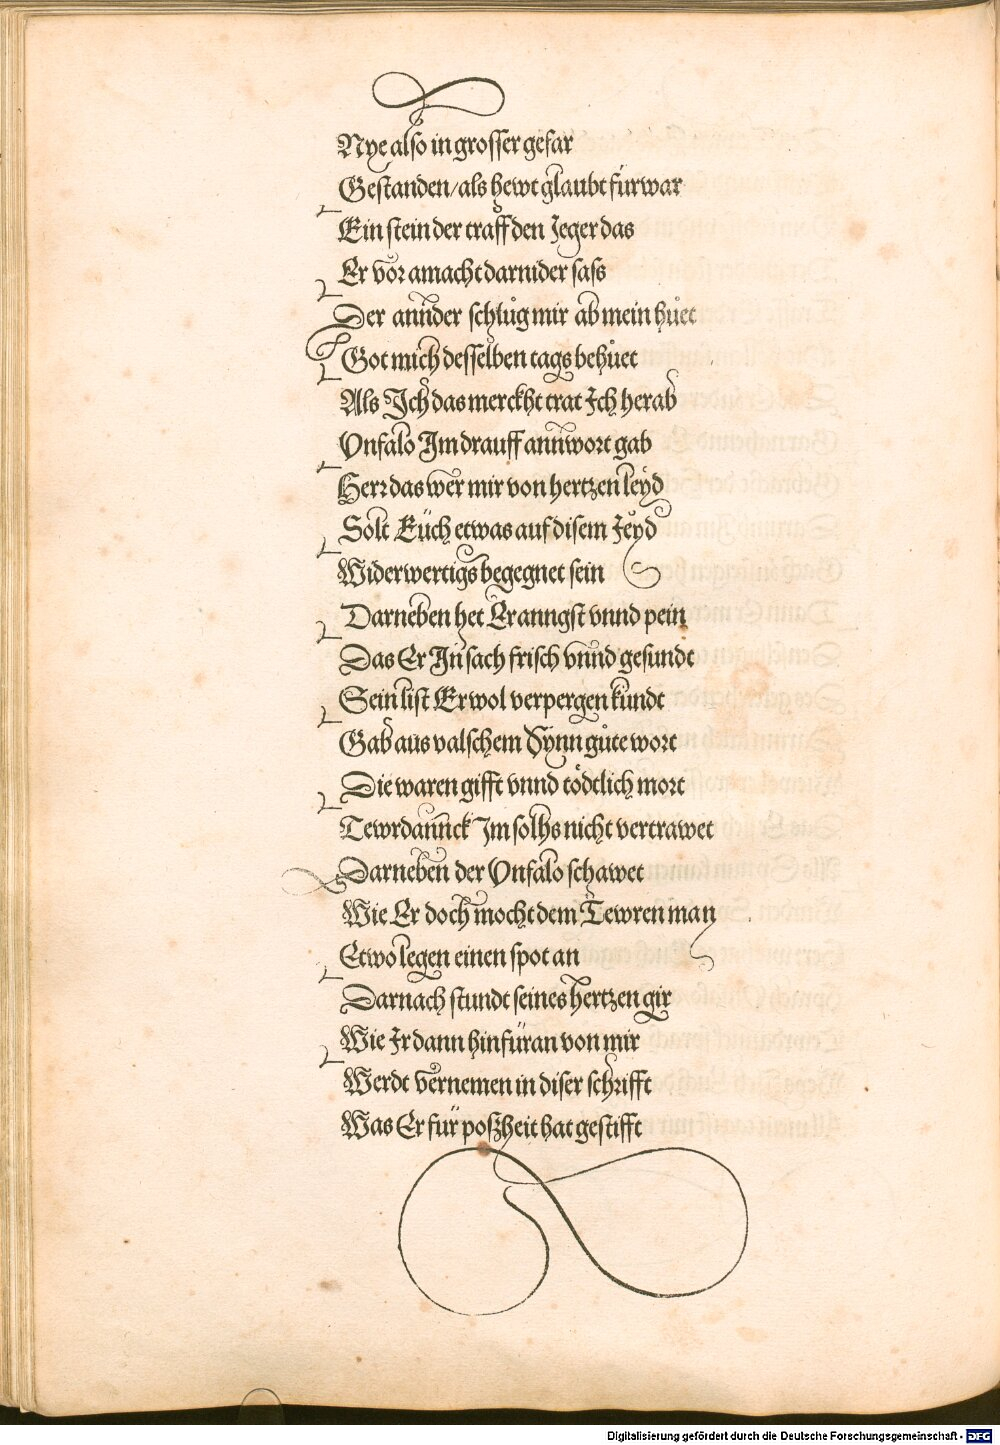 Nye also in grosser gefar
Gestanden/als hewt glaubt fürwar
Ein stein der traff den Jeger das
Er vor amacht darnider sass
Der annder schlůg mir ab mein hůet
Got mich desselben tags behůet
Als Ich das merckht trat Ich herab
Vnfalo Im drauff annwort gab
Herr das wer mir von hertzen leyd
Solt Eüch etwas auf disem Jeyd
Widerwertigs begegnet sein
Darneben het Er anngst vnnd pein
Das Er In sach frisch vnnd gesundt
Sein list Er wol verpergen kundt
Gab aus valschem Synn gůte wort
Die waren gifft vnnd tödtlich mort
Tewrdannck Im solhs nicht vertrawet
Darneben der Vnfalo schawet
Wie Er doch mocht dem Tewren man
Etwo legen einen spot an
Darnach stundt seines hertzen gir
Wie Ir dann hinfüran von mir
Werdt vernemen in diser schrifft
Was Er für poßheit hat gestifft
Digitalisierung gefördert durch die Deutsche Forschungsgemeinschaft - DFG